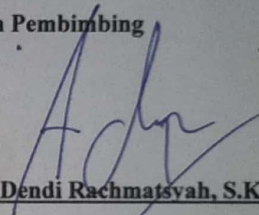 Pembimbing
Dendi Rachmatsyah, S.K